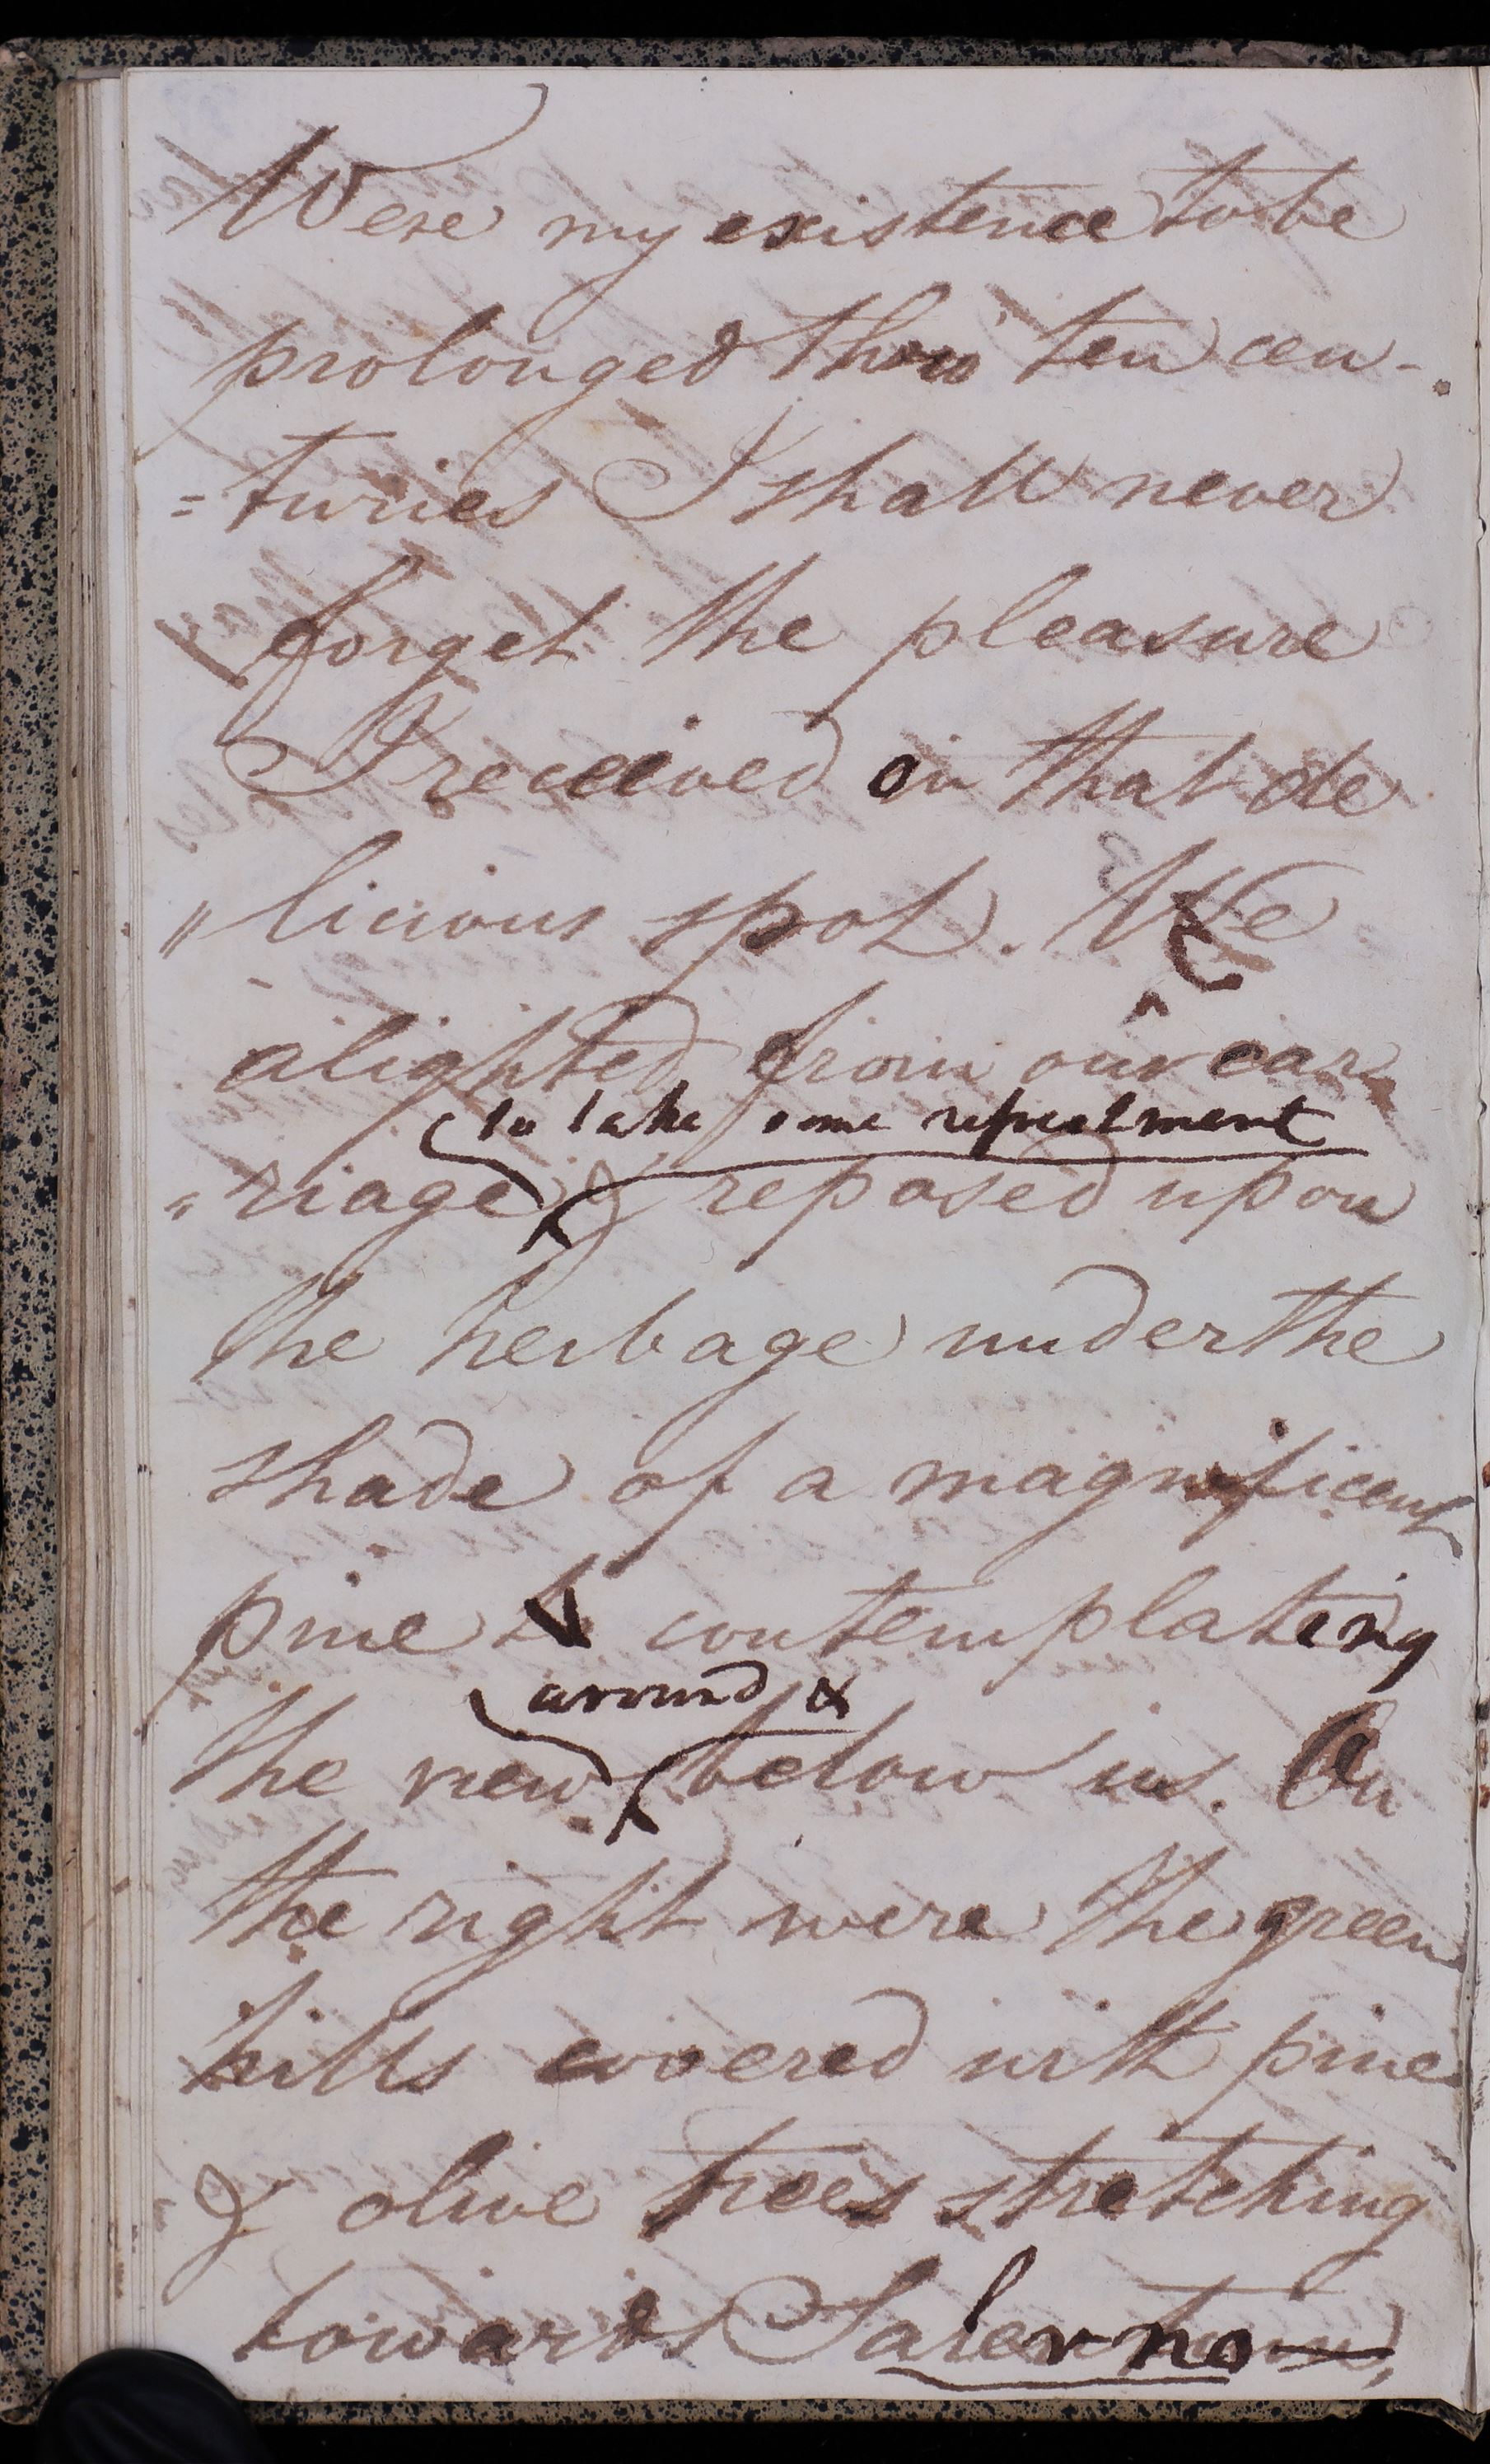 Were my existence to be
prolonged thro' ten cen-
=turies I shall never
forget the pleasure
I received in that de
"licious spot. We
alighted from our car
to take some refreshment
"riage & reposed upon
the herbage under the
shade of a magnificent
pine contemplating
around &
the view below us. On
the right were the green
hills covered with pine
& olive trees stretching
towards Salerno